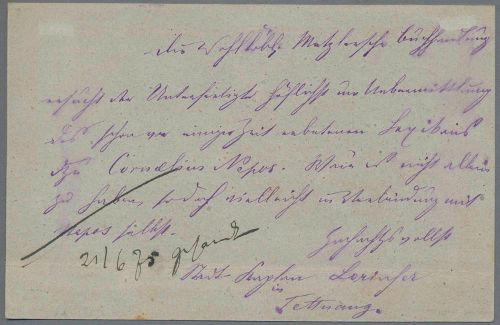 Die Wohllöbl. Metzlersche Buchhandlung
ersucht der Unterfertigte höflichst um Uebermittlung
des schon vor einiger Zeit erbetenen Lexikons
zu Cornelius Nepos. Wäre es nicht allein
zu haben, so doch vielleicht in Verbindung mit
Nepos selbst.
Hochachtungsvollst
21/6 75
Stadt-Kaplan
in
Tettnang.